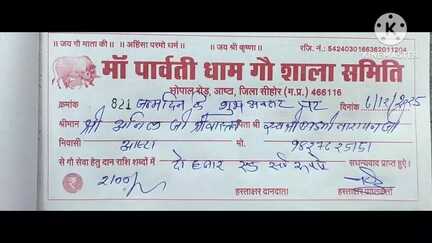 ॥ जय गौ माता की ॥ ॥ अहिंसा परमो धर्म ॥ ॥ जय श्री कृष्णा ॥ रजि. नं.: 5424030166362011204
माँ पार्वती धाम गौ शाला समिति
भोपाल रोड़, आष्टा, जिला सीहोर (म.प्र.) 466116
क्रमांक 821 जन्मदिन के शुभ अवसर पर दिनांक 6/12/2025
श्रीमान श्री अनिल जी श्रीवास्तव पिता श्री
निवासी आष्टा मो. 9827625151
से गौ सेवा हेतु दान राशि शब्दों में दो हजार एक सौ रूपये सधन्यवाद प्राप्त हुऐ।
2100/-
हस्ताक्षर दानदाता हस्ताक्षर
KINEMASTER